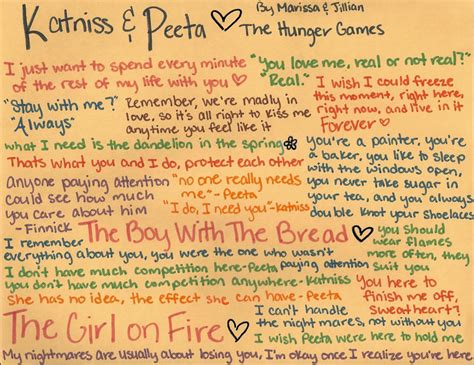 Katniss & Peeta ♡ By Marissa & Jillian
The Hunger Games
I just want to spend every minute
of the rest of my life with you ♡
"You love me, real or not real?"
"Real."
"Stay with me?"
"Always"
Remember, we're madly in
love, so it's all right to kiss me
anytime you feel like it
I wish I could freeze
this moment, right here,
right now, and live in it
Forever ♡
what I need is the dandelion in the spring
Thats what you and I do, protect each other
you're a painter, you're
a baker, you like to sleep
with the windows open,
you never take sugar in
your tea, and you always
double knot your shoelaces
Anyone paying attention
could see how much
you care about him
- Finnick
"no one really needs
me" - Peeta
"I do, I need you" - Katniss
The Boy With The Bread ♡
I remember
everything about you, you were the one who wasn't
paying attention
you should
wear flames
more often, they
suit you
I don't have much competition here - Peeta
you don't have much competition anywhere - Katniss
She has no idea, the effect she can have - Peeta
You here to
finish me off,
Sweetheart?
The Girl on Fire ♡
I can't handle
the nightmares, not without you
I wish Peeta were here to hold me
My nightmares are usually about losing you, I'm okay once I realize you're here